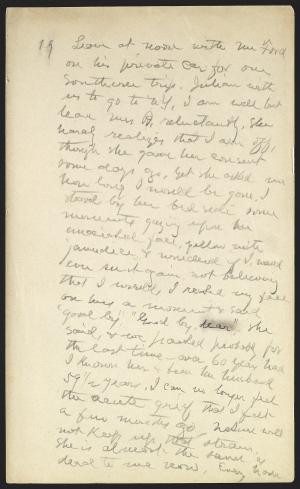 19 Leave at noon with Mr Ford
on his private car for our
Southern trip. Julian with
us to go to Atl, I am well but
leave Mrs B, reluctantly. She
hardly realizes that I am off,
though she gave her consent
some days ago, yet she asked me
how long I would be gone, I
stood by her bed side some
moments gazing upon her
emaciated face, yellow with
jaundice, & wondered if I would
ever see it again, not believing
that I would, I rested my face
on hers a moment & said
"good by," "Good by, dear," she
said, & we parted probably for
the last time – over 60 years had
I known her & been her husband
59½ years, I can no longer feel
the acute grief that I felt
a few months ago. Nature will
not keep up that strain,
She is almost the same as
dead to me now. Every hour